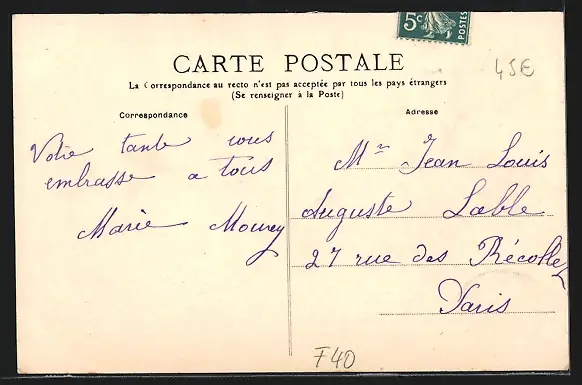 5c POSTES
45€
CARTE POSTALE
La Correspondance au recto n'est pas acceptée par tous les pays étrangers
(Se renseigner à la Poste)
Correspondance
Votre tante vous
embrasse a tous
Marie Mourey
Adresse
Mr Jean Louis
Auguste Lable
27 rue des Récollez
Paris
F40